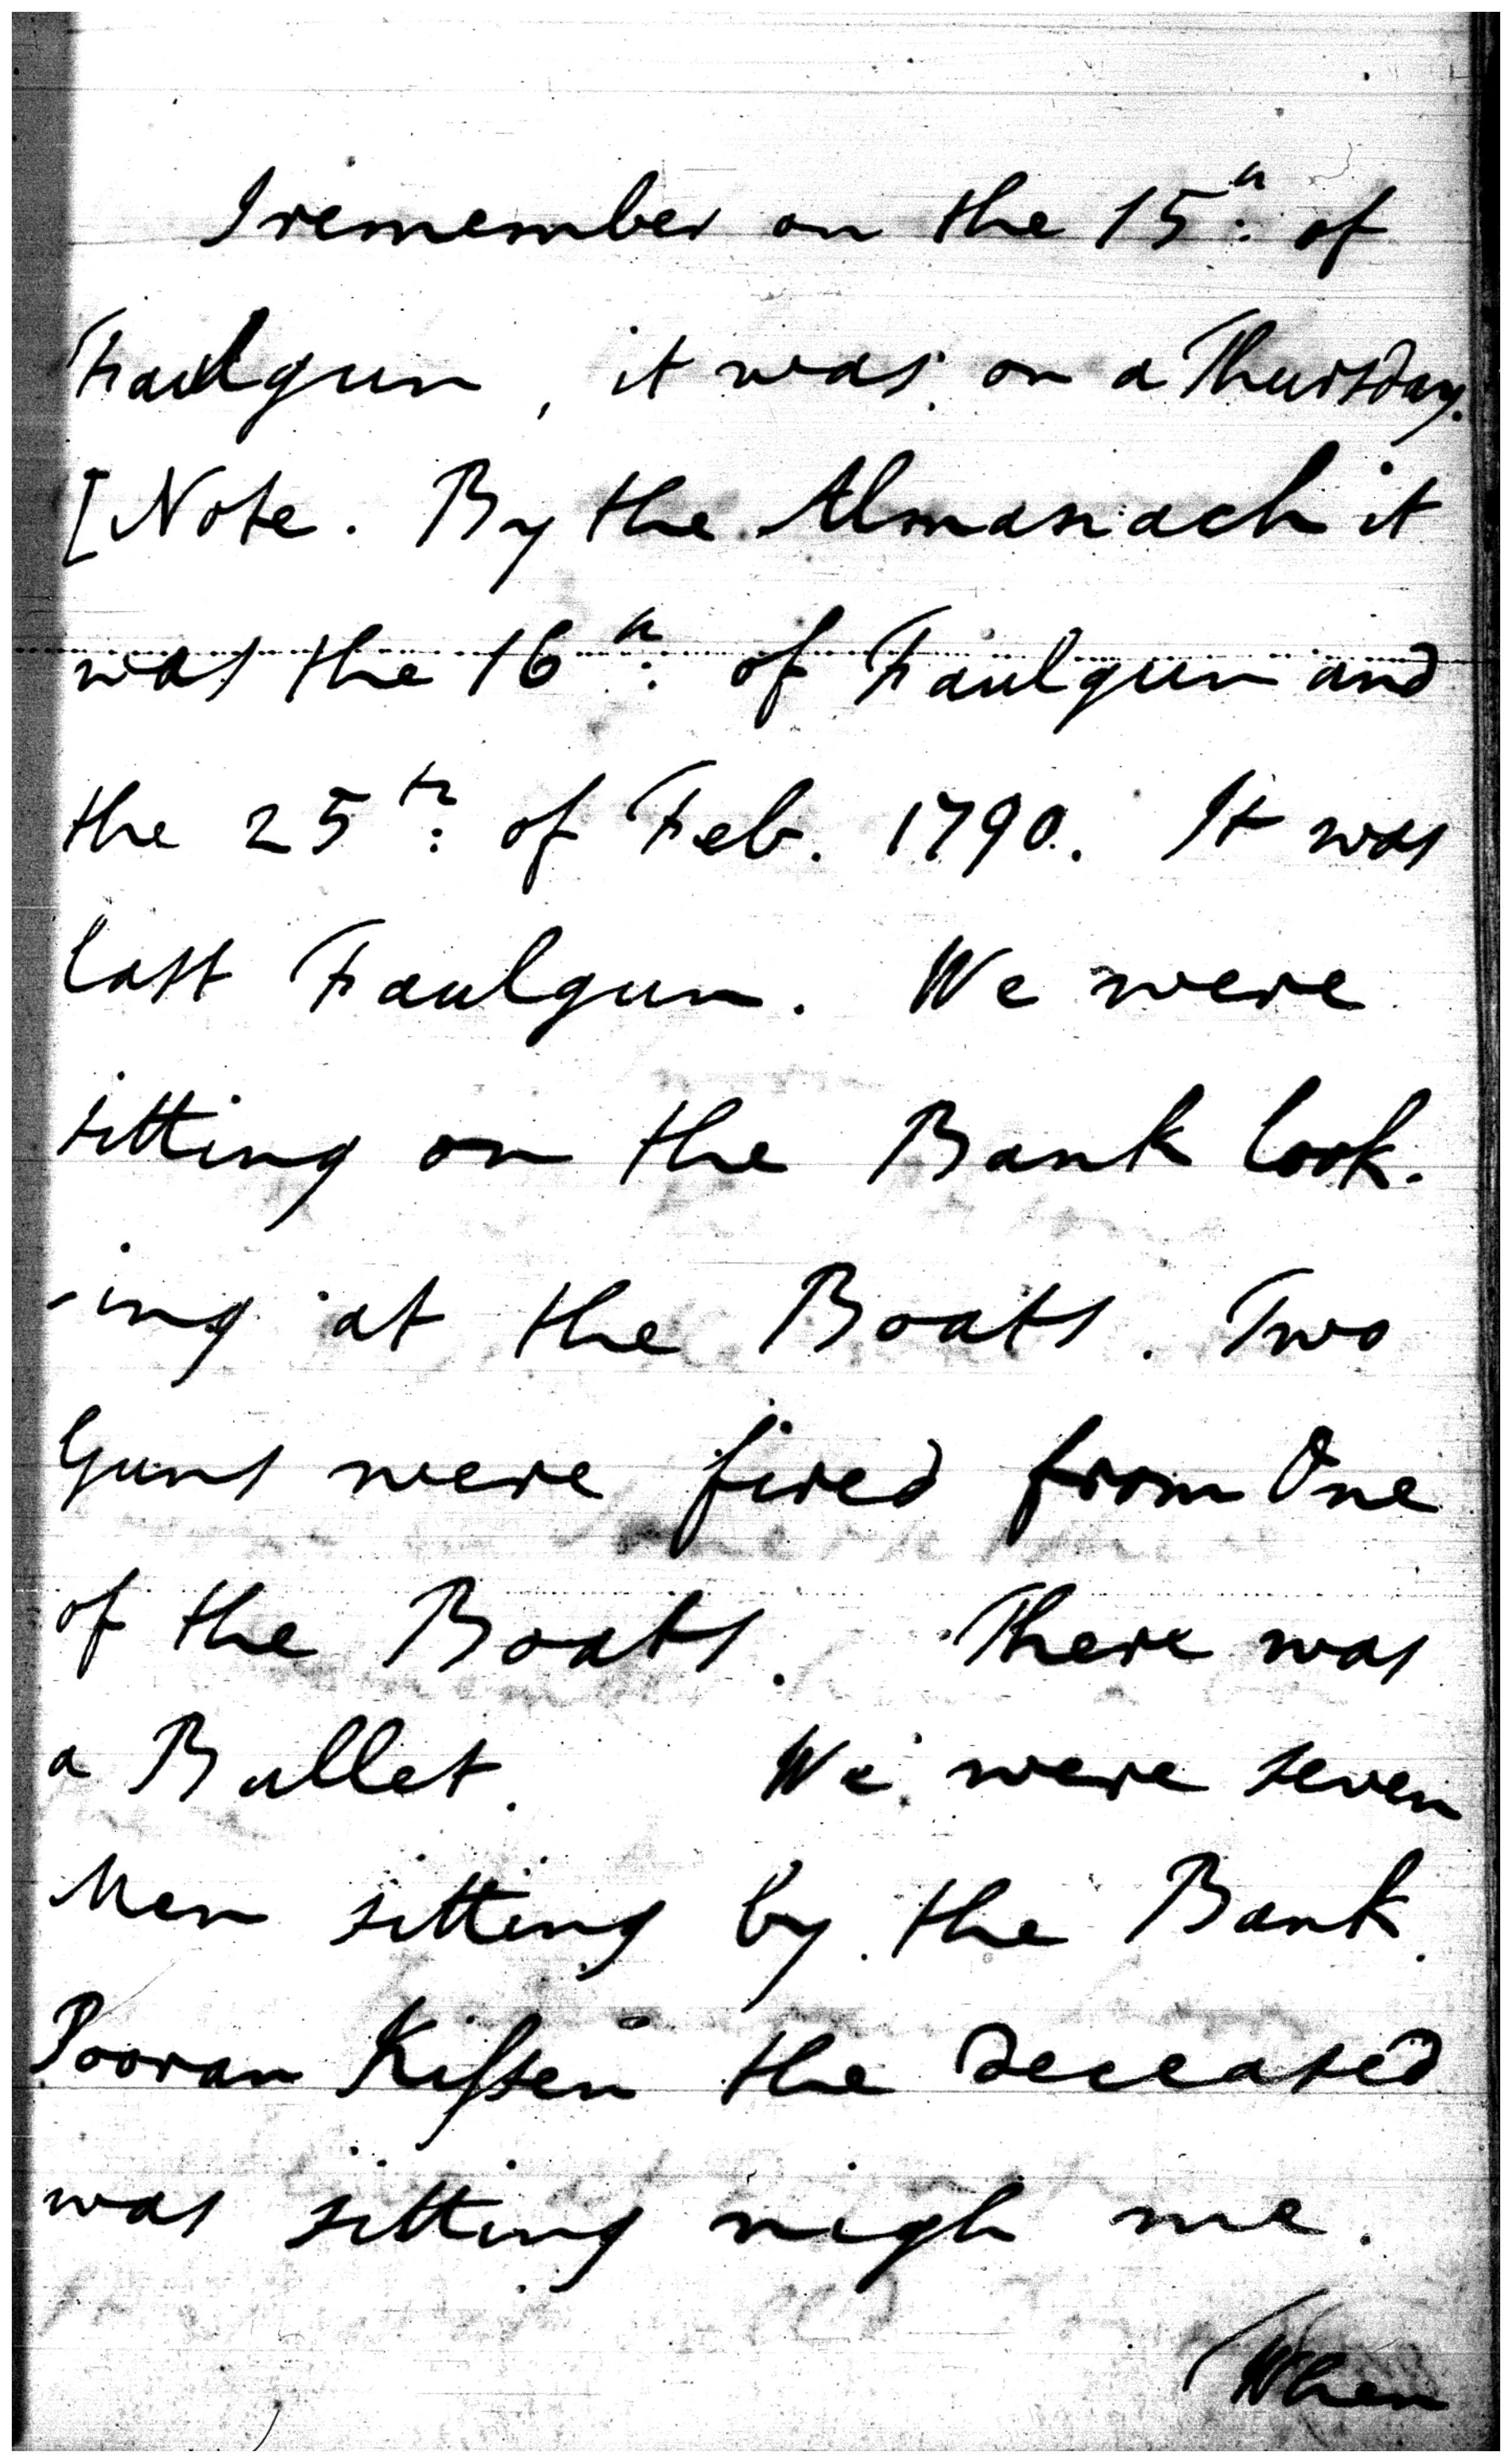 I remember on the 15th: of
Faulgun, it was on a Thursday.
[Note. By the Almanach it
was the 16th: of Faulgun and
the 25th: of Feb. 1790. It was
last Faulgun. We were
sitting on the Bank look-
-ing at the Boats. Two
Guns were fired from One
of the Boats. There was
a Bullet. We were seven
Men sitting by the Bank.
Pooran Kissen the Deceased
was sitting nigh me.
When